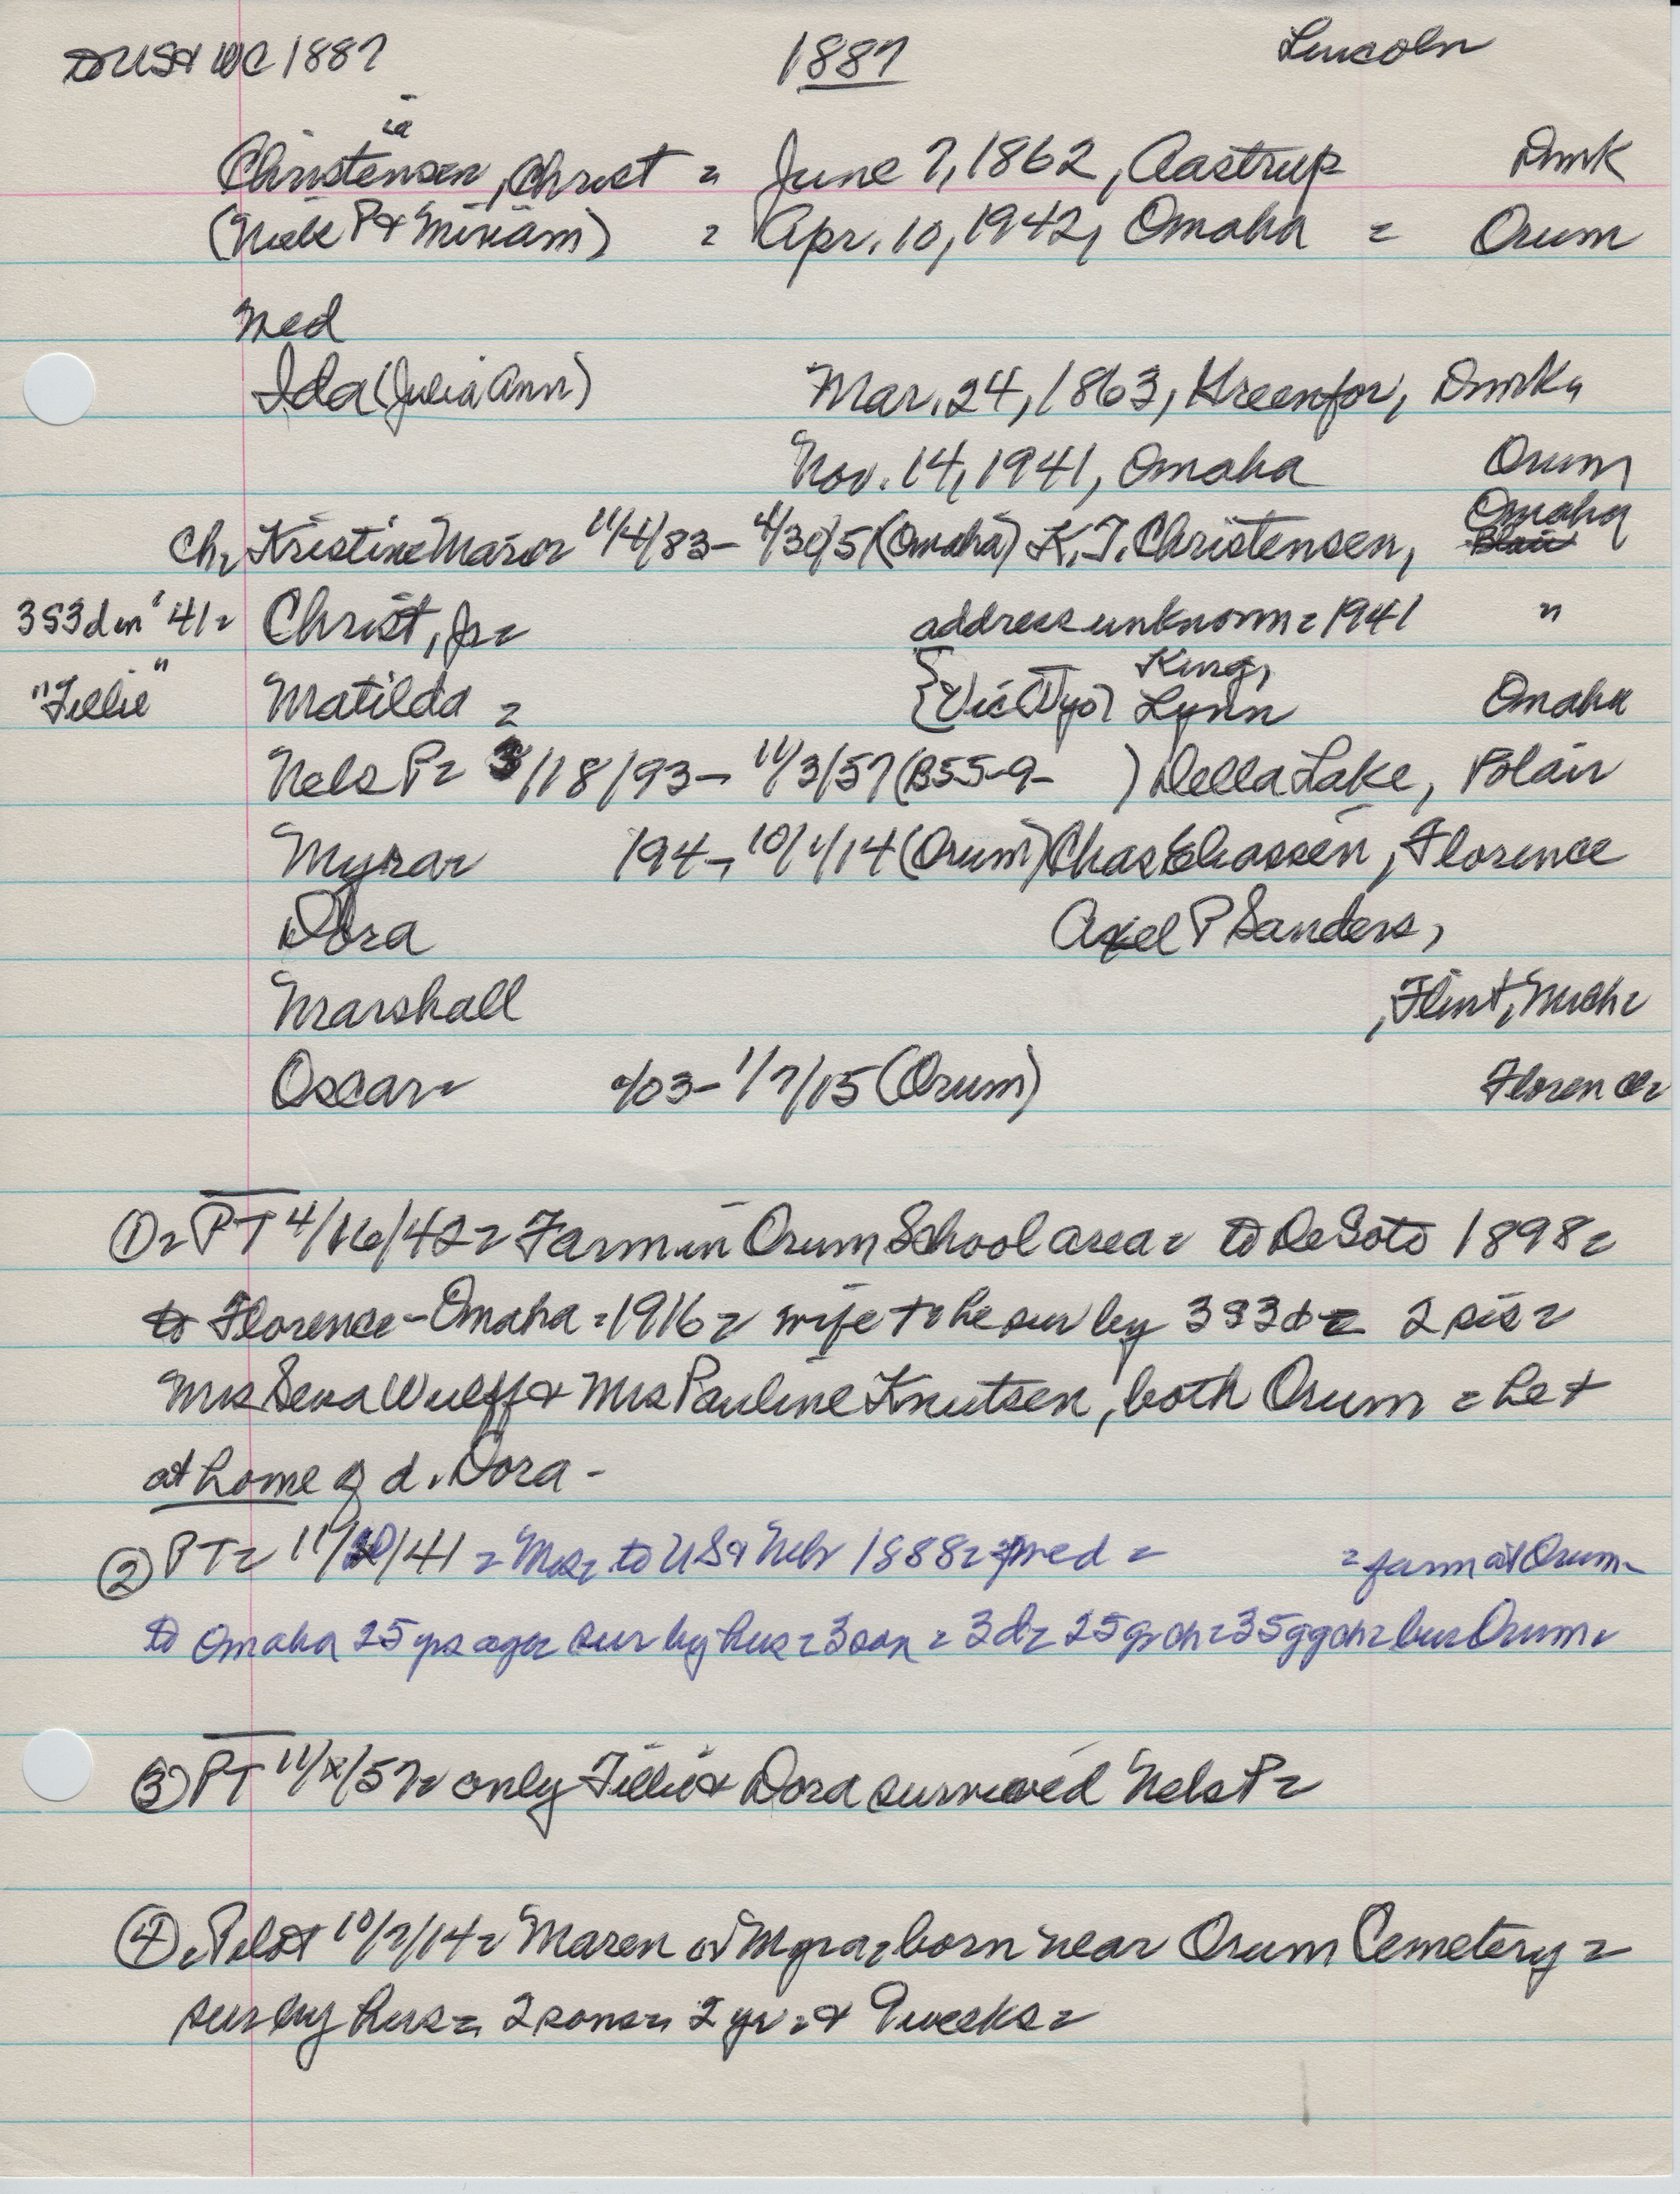 to US & WC 1887 1887 Lincoln
ia
Christensen, Christ = June 7, 1862, Aastrup Dmrk
(Niels P & Miriam) = Apr. 10, 1942, Omaha = Orum
med
Ida (Julia Ann) Mar. 24, 1863, Dmrk,
Nov. 14, 1941, Omaha Orum
Ch, Kristine 11/4/83- (Omaha) K.T. Christensen, Omaha
3S3d in '41= Christ, Jr= address unknown=1941 "
King,
"Tillie" Matilda = Lynn Omaha
Nels P= 3/18/93- 11/3/57 (B55-9- ) Della Lake, Blair
Myra= 194-, 10/1/14 (Orum) Chas Eliassen, Florence
Dora Axel P Sanders,
Marshall , Flint, Mich=
Oscar= /03- 1/7/15 (Orum) Florence=
①= PT 4/16/42= Farm in Orum School area= to DeSoto 1898=
to Florence-Omaha=1916= wife + he sur by 3S3d= 2 sis=
Mrs Sena Wulff & Mrs Pauline Knutsen, both Orum = he +
at home of d. Dora-
② PT= 11/20/41 = Mrs= to US & Nebr 1888= med = = farm at Orum-
to Omaha 25 yrs ago= sur by hus= 3 son= 3d= 25 gr ch= 35 ggch= bur Orum=
③ PT 11/ /57= only Tillie & Dora survived Nels P=
④= Pilot 10/7/14= Maren or Myra= born near Orum Cemetery=
sur by hus= 2 sons= 2 yr. & 9 weeks=